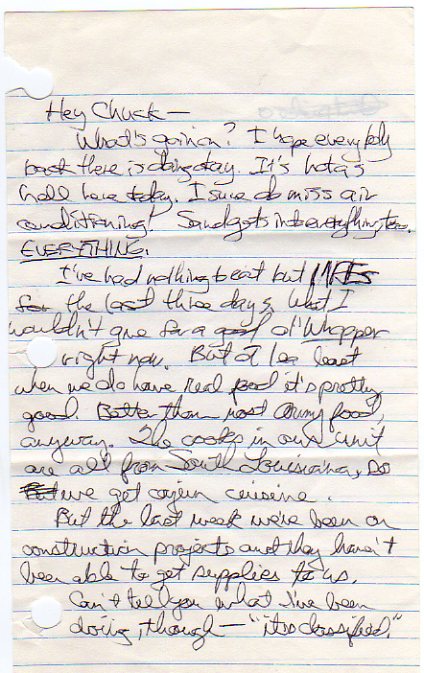 Hey Chuck—
What's goin on? I hope everybody
back there is doing okay. It's hot as
hell here today. I sure do miss air
conditioning! Sand gets into everything, too.
EVERYTHING.
I've had nothing to eat but MREs
for the last three days. What I
wouldn't give for a good ol' Whopper
right now. But at least
when we do have real food it's pretty
good. Better than most Army food,
anyway. The cooks in our unit
are all from South Louisiana, so
we get cajun cuisine.
But the last week we've been on
construction projects and they haven't
been able to get supplies to us.
Can't tell you what I've been
doing, though— "it's classified."